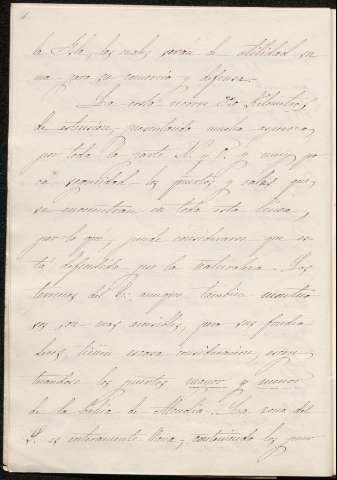 6.
la Isla, los cuales serán de utilidad su
ma para su comercio y defensa.
La costa recorre 320 kilometros
de estension, presentando mucha aspereza
por toda la parte N. y O. y muy po
ca seguridad los puertos y calas que
se encuentran en toda esta linea,
por lo que, puede considerarse que es
tá defendida por la naturaleza. Los
terrenos del E. aunque tambien montuo
sos son mas accesibles, pero sus fondea
deros, tienen escasa consideracion, escep
tuandose los puertos mayor y menor
de la bahia de Alcudia. La zona del
S. es enteramente llana, conteniendo los puer